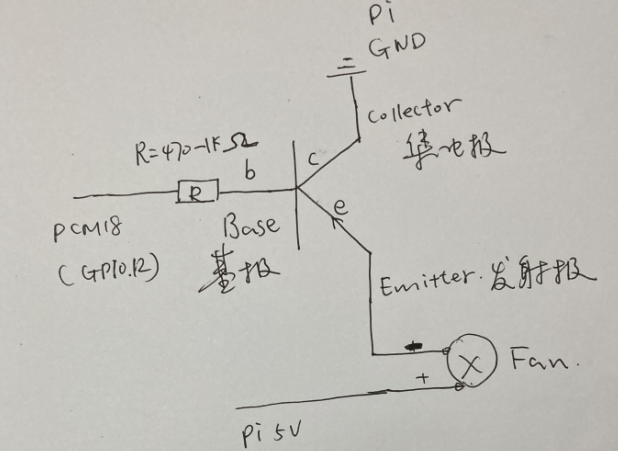 Pi
GND
Collector
集电极
R=470-1KΩ
b
c
R
e
PCM18
(GPIO.12)
Base
基极
Emitter. 发射极
-
+
X
Fan.
Pi 5V